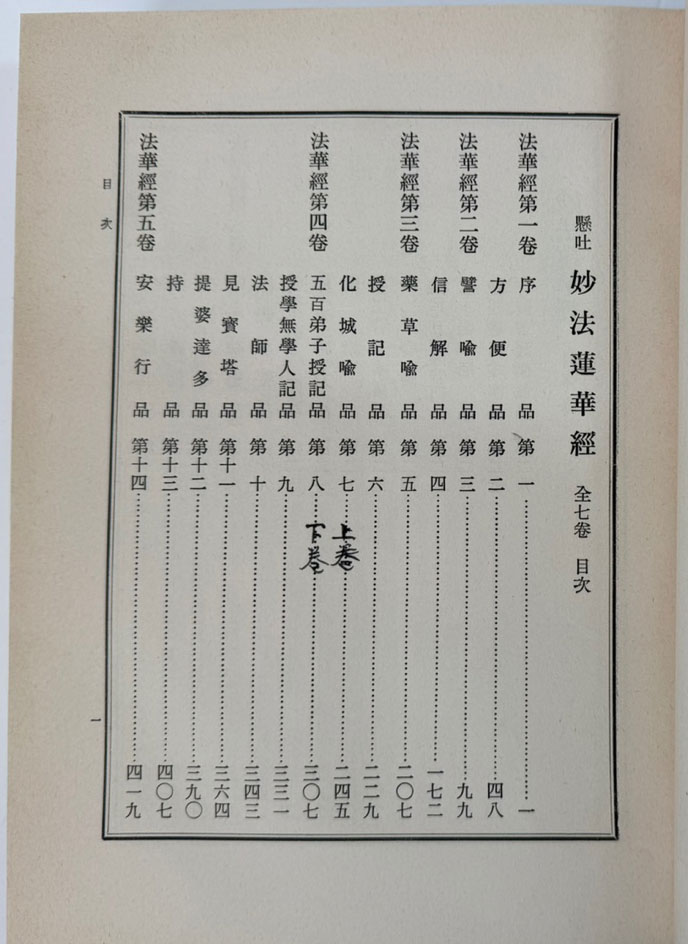 懸吐 妙法蓮華經 全七卷 目次
法華經第一卷 序品 第一 一
方便品 第二 四八
法華經第二卷 譬喩品 第三 九九
信解品 第四 一七二
法華經第三卷 藥草喩品 第五 二〇七
授記品 第六 二二九
化城喩品 第七 上巻 二四五
法華經第四卷 五百弟子授記品 第八 下巻 三〇七
授學無學人記品 第九 三三一
法師品 第十 三四三
見寶塔品 第十一 三六四
提婆達多品 第十二 三九〇
持品 第十三 四〇七
法華經第五卷 安樂行品 第十四 四一九
目次
一